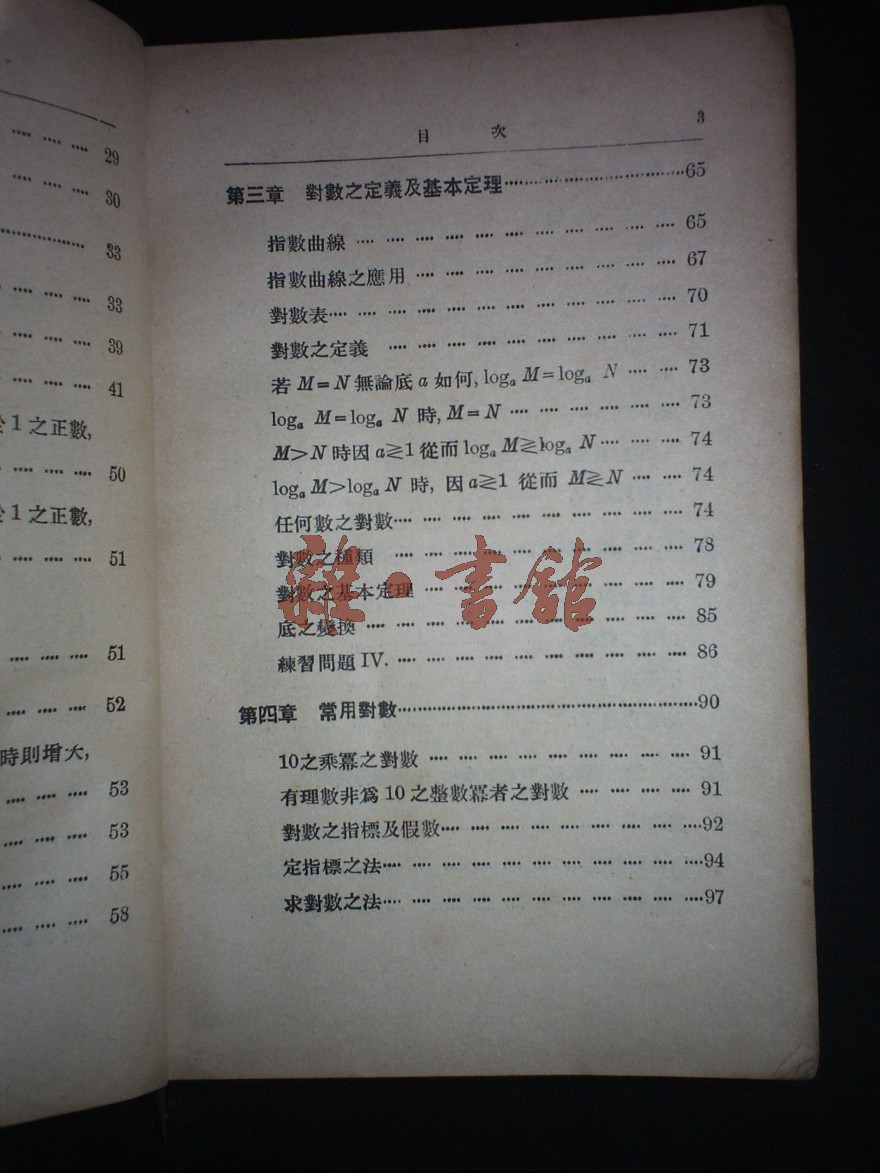 29
30
33
33
39
41
1之正數,
50
1之正數,
51
51
52
時則增大,
53
53
55
58
目 次 3
第三章 對數之定義及基本定理……65
指數曲線 …… 65
指數曲線之應用 …… 67
對數表…… 70
對數之定義 …… 71
若 M=N 無論底 a 如何, logₐ M=logₐ N …… 73
logₐ M=logₐ N 時, M=N …… 73
M>N 時因 a≷1 從而 logₐ M≷logₐ N …… 74
logₐ M>logₐ N 時, 因 a≷1 從而 M≷N …… 74
任何數之對數…… 74
對數之種類 …… 78
對數之基本定理 …… 79
底之變換 …… 85
練習問題 IV. …… 86
雜·書館
第四章 常用對數……90
10之乘冪之對數 …… 91
有理數非爲 10 之整數冪者之對數 …… 91
對數之指標及假數……92
定指標之法……94
求對數之法……97